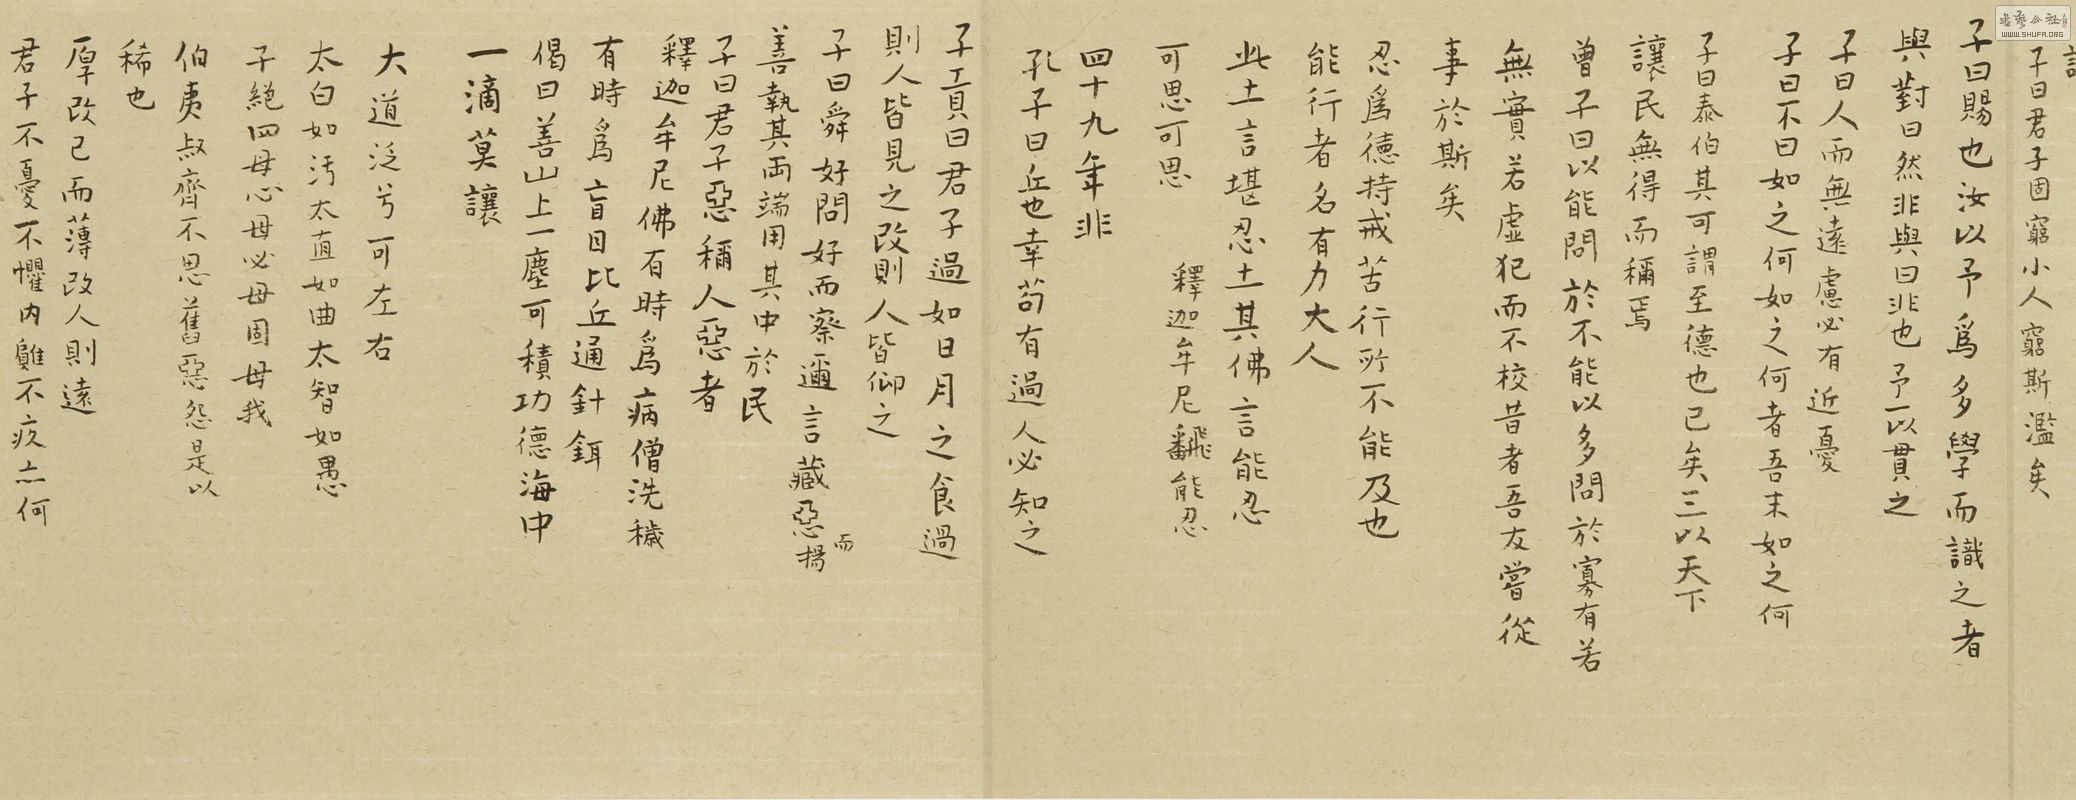 子曰君子固窮小人窮斯濫矣
子曰賜也汝以予爲多學而識之者
與對曰然非與曰非也予一以貫之
子曰人而無遠慮必有近憂
子曰不曰如之何如之何者吾末如之何
子曰泰伯其可謂至德也已矣三以天下
讓民無得而稱焉
曾子曰以能問於不能以多問於寡有若
無實若虛犯而不校昔者吾友嘗從
事於斯矣
忍爲德持戒苦行所不能及也
能行者名有力大人
此土言堪忍土其佛言能忍
可思可思
釋迦牟尼翻能忍
四十九年非
孔子曰丘也幸苟有過人必知之
子貢曰君子過如日月之食過
則人皆見之改則人皆仰之
子曰舜好問好而察邇言藏惡而揚
善執其兩端用其中於民
子曰君子惡稱人惡者
釋迦牟尼佛有時爲病僧洗穢
有時爲盲目比丘通針鉺
偈曰善山上一塵可積功德海中
一滴莫讓
大道泛兮可左右
太白如污太直如曲太智如愚
子絕四毋心毋必毋固毋我
伯夷叔齊不思舊惡怨是以
稀也
厚改已而薄改人則遠
君子不憂不懼內雖不疚亦何
書藝公社
WWW.SHUFA.ORG